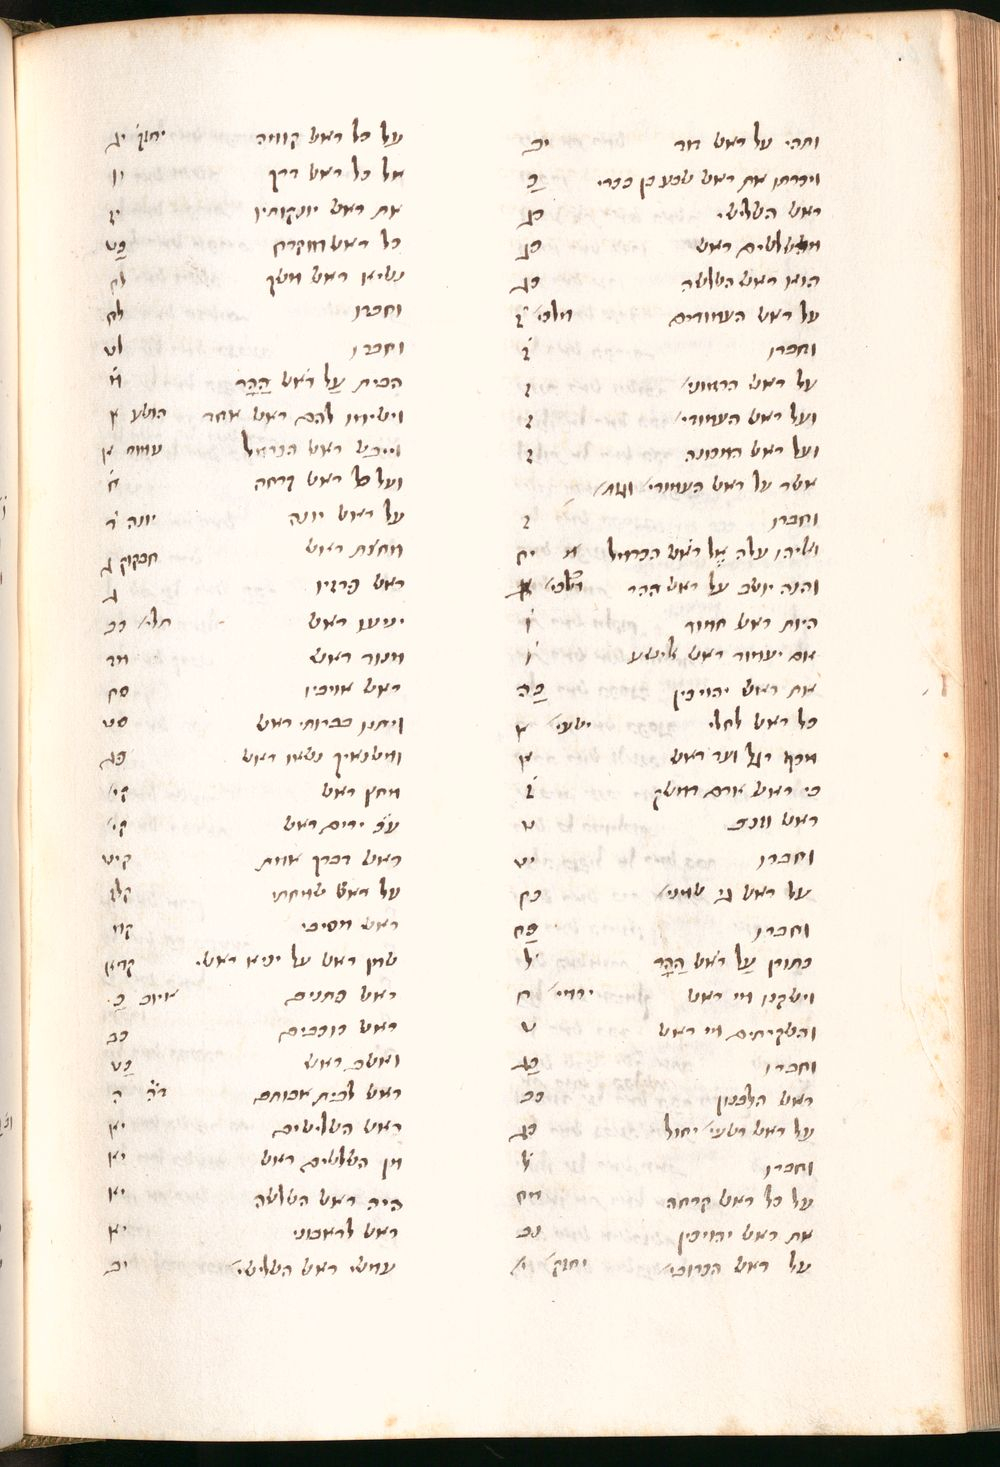 ותהי על ראש דוד יב
ויכרתו את ראש שבע בן בכרי כ
ראש השלישי כג
מהשלשים ראש כג
הוא ראש השלשה כג
על ראש העמודים מלכי׳ ז
וחברו ז
על ראש הרמוני׳ ז
ועל ראש העמודי׳ ז
ועל ראש המכונה ז
אשר על ראש העמודי׳
וחברו ז
ואליהו עלה אֶל רֹאש הכרמל יח
והנה יושב על ראש ההר
היות ראש חמור ו
אם יעמוד ראש אלישע ו
את ראש יהויכין כה
כל ראש לחלי ישעי׳ א
מכף רגל ועד ראש א
כי ראש ארם דמשק ז
ראש וזנב ט
וחברו יט
על ראש גי שמני׳ כח
וחברו כח
כתורן עַל רֹאש הָהָר ל
וישקנו מי ראש ירמי׳ ח
והשקיתים מי ראש ט
וחברו כג
ראש הלבנון כב
על ראש רשעי׳ יחול כג
וחברו ל
על כל ראש קרחה מח
את ראש יהויכין נב
על ראש הכרובי׳ יחזק׳ י׳
על כל ראש קומה יחזק׳ יג
אל כל ראש דרך יו
את ראש יונקותיו יז
כל ראש מוקרח כט
נשיא ראש משך לח
וחברו לח
וחברו לט
הבית עַל רֹאש הָהָר מ
וישימו להם ראש אחד הושע א
וייבש ראש הכרמל עמוס א
ועל כל ראש קרחה ח
על ראש יונה יונה ד
מחצת ראש חבקוק ג
ראש פרזיו ג
יניעו ראש תלי׳ כב
מנוד ראש מד
ראש אויביו סח
ויתנו בברותי ראש סט
ומשנאיך נשאו ראש פג
מחץ ראש קי׳
ע״כ ירים ראש קי׳
ראש דברך אמת קיט
על ראש שמחתי קלז
ראש מסיבי קמ
שמן ראש אל יניא ראשי קמא
ראש פתנים איוב כ
ראש כוכבים כב
ואשב ראש כט
ראש לבית אבותם ד״ה ה
ראש השלישים יא
מן השלשים ראש יא
היה ראש השלשה יא
ראש לראובני יא
עמשי ראש השלישי׳ יב